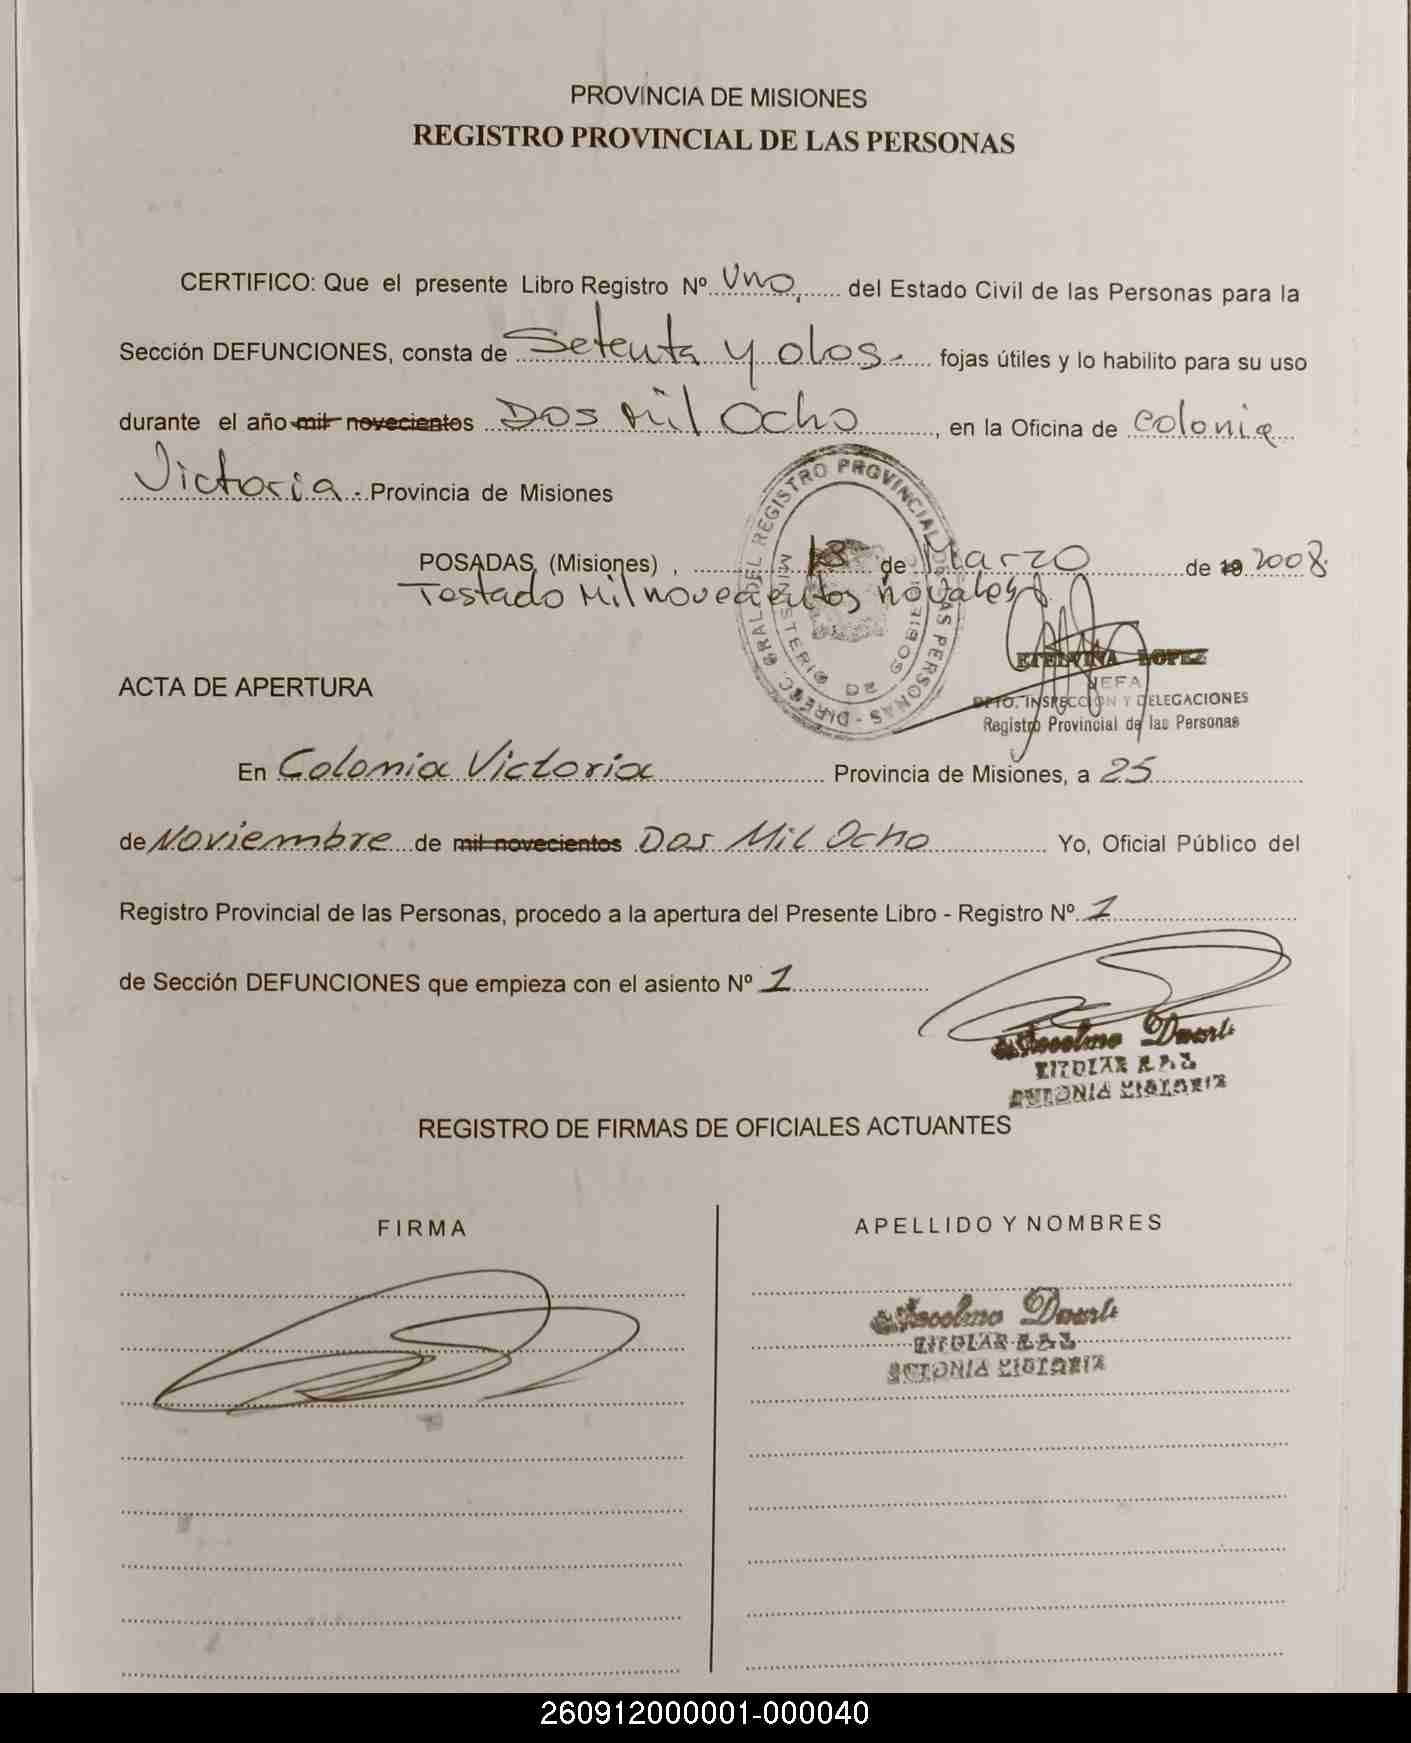 PROVINCIA DE MISIONES
REGISTRO PROVINCIAL DE LAS PERSONAS
CERTIFICO: Que el presente Libro Registro Nº Uno, del Estado Civil de las Personas para la
Sección DEFUNCIONES, consta de Setenta y dos.- fojas útiles y lo habilito para su uso
durante el año mil novecientos Dos Mil Ocho, en la Oficina de Colonia
Victoria.- Provincia de Misiones
POSADAS, (Misiones), 13 de Marzo de 19 2008.
Testado Mil novecientos no vale
DIREC. GRAL. DEL REGISTRO PROVINCIAL DE LAS PERSONAS
MINISTERIO DE GOBIERNO
ETELVINA LOPEZ
JEFA
DPTO. INSPECCION Y DELEGACIONES
Registro Provincial de las Personas
ACTA DE APERTURA
En Colonia Victoria Provincia de Misiones, a 25
de Noviembre de mil novecientos Dos Mil Ocho Yo, Oficial Público del
Registro Provincial de las Personas, procedo a la apertura del Presente Libro - Registro Nº 1
de Sección DEFUNCIONES que empieza con el asiento Nº 1
Duarte
TITULAR
COLONIA VICTORIA
REGISTRO DE FIRMAS DE OFICIALES ACTUANTES
FIRMA
APELLIDO Y NOMBRES
Duarte
TITULAR
COLONIA VICTORIA
260912000001-000040